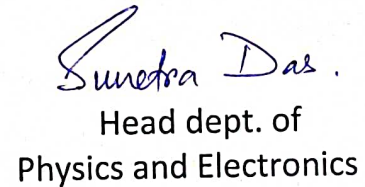 Sunetra Das.
Head dept. of
Physics and Electronics